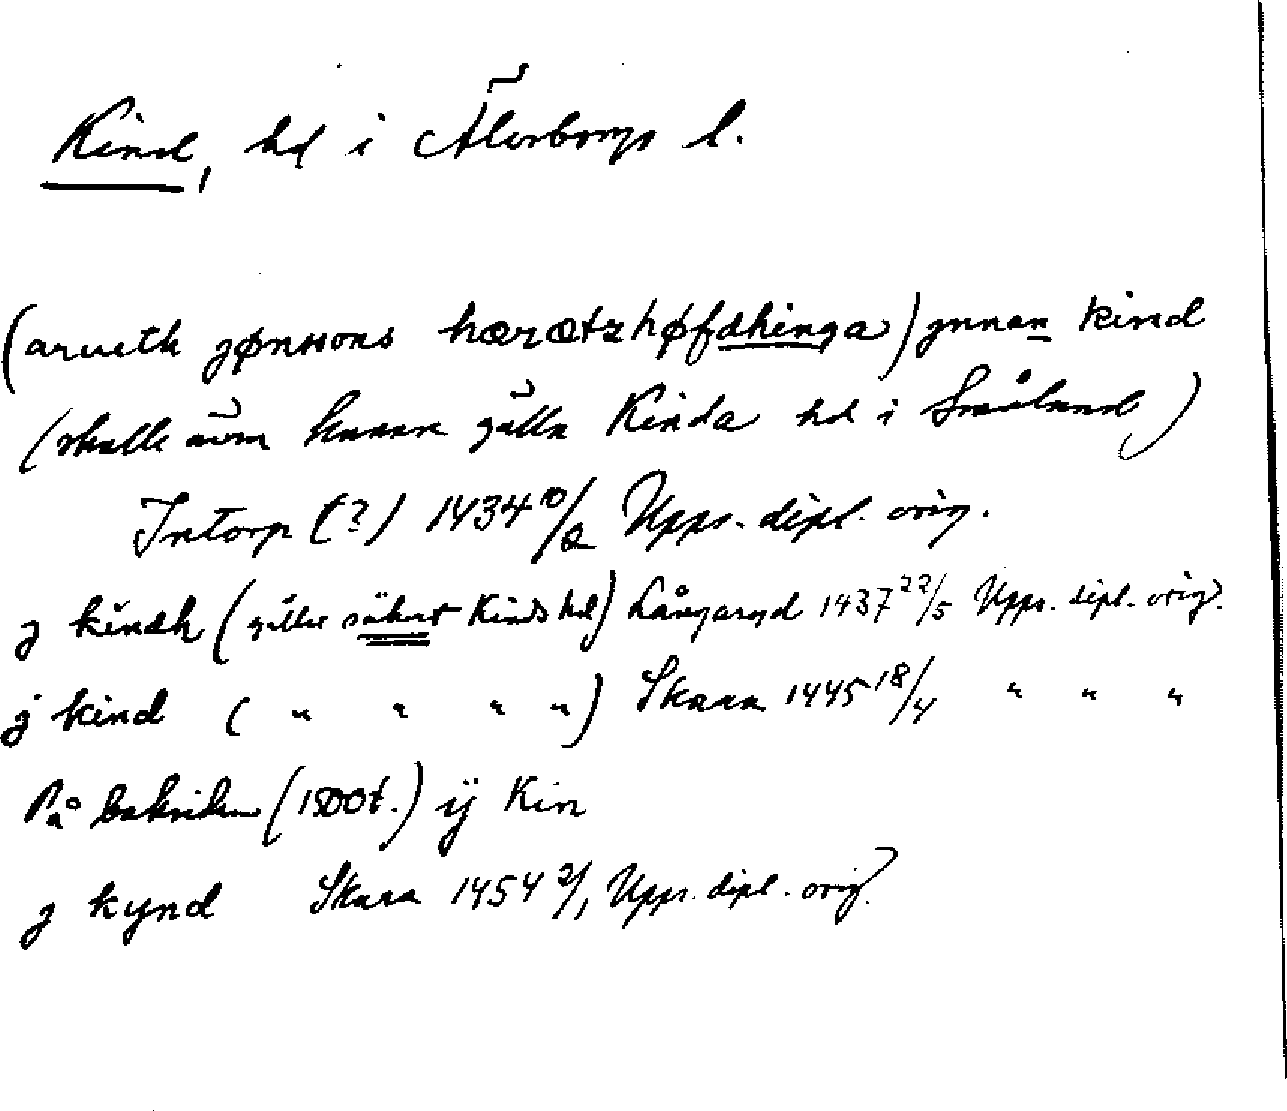 Kind, hd i Älvborgs l.
(arueth jønssons hærætzhøfdhinga) jnnan kind
(skulle även kunna gälla Kinda hd i Småland)
Intorp (?) 1434 10/2 Upps. dipl. orig.
j kindh (gäller säkert Kinds hd) Långaryd 1437 22/5 Upps. dipl. orig.
j kind ( " " " " ) Skara 1445 18/4 " " "
På baksidan (1500t.) ij Kin
j kynd Skara 1454 2/1 Upps. dipl. orig.